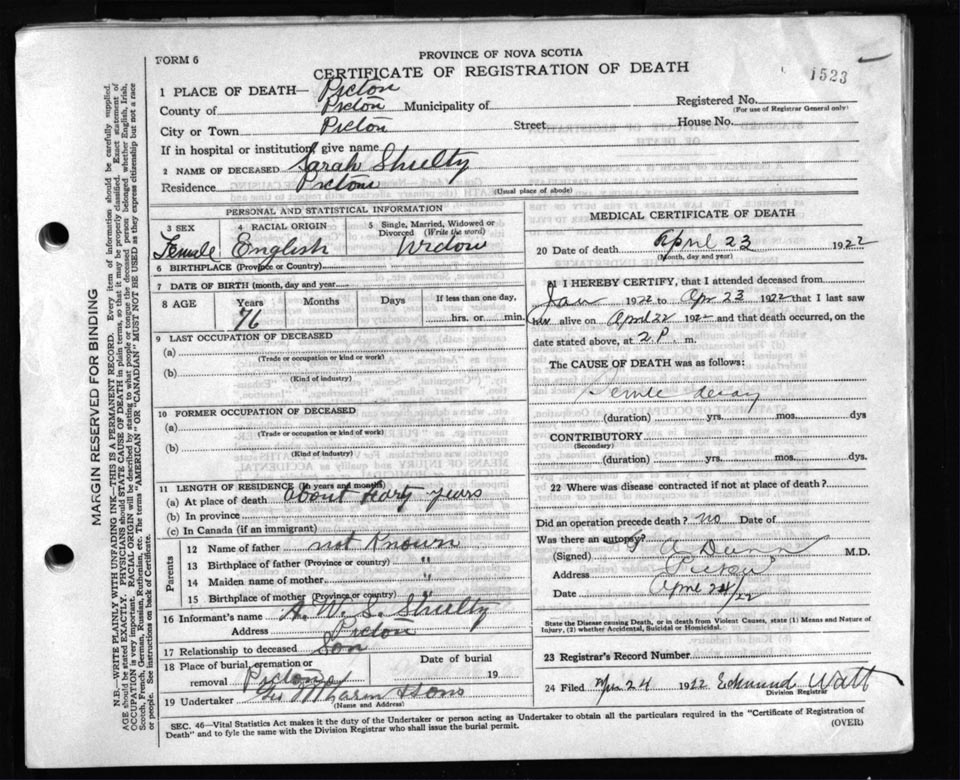 FORM 6
PROVINCE OF NOVA SCOTIA
CERTIFICATE OF REGISTRATION OF DEATH
1523
1 PLACE OF DEATH— Picton
County of Picton Municipality of
Registered No.
(For use of Registrar General only)
City or Town Picton Street House No.
If in hospital or institution, give name
2 NAME OF DECEASED Sarah Shielty
Residence Picton (Usual place of abode)
PERSONAL AND STATISTICAL INFORMATION
3 SEX 4 RACIAL ORIGIN 5 Single, Married, Widowed or Divorced (Write the word)
Female English Widow
6 BIRTHPLACE (Province or Country)
7 DATE OF BIRTH (month, day and year)
8 AGE Years Months Days If less than one day,
76 hrs. or min.
9 LAST OCCUPATION OF DECEASED
(a)
(Trade or occupation or kind or work)
(b)
(Kind of industry)
10 FORMER OCCUPATION OF DECEASED
(a)
(Trade or occupation or kind or work)
(b)
(Kind of industry)
11 LENGTH OF RESIDENCE (In years and months)
(a) At place of death about years
(b) In province
(c) In Canada (if an immigrant)
Parents
12 Name of father not Known
13 Birthplace of father (Province or country) "
14 Maiden name of mother "
15 Birthplace of mother (Province or country) "
16 Informant's name A. W. S. Shielty
Address Picton
17 Relationship to deceased Son
18 Place of burial, cremation or removal Picton Date of burial 19
19 Undertaker & Sons
(Name and Address)
MEDICAL CERTIFICATE OF DEATH
20 Date of death April 23 1922
(Month, day and year)
21 I HEREBY CERTIFY, that I attended deceased from
1922 to Apr 23 1922 that I last saw
her alive on April 22 1922 and that death occurred, on the
date stated above, at 2 P. m.
The CAUSE OF DEATH was as follows:
Senile decay
(duration) yrs. mos. dys
CONTRIBUTORY
(Secondary)
(duration) yrs. mos. dys.
22 Where was disease contracted if not at place of death?
Did an operation precede death? no Date of
Was there an autopsy?
(Signed) A Dunn M.D.
Address Picton
Date April 24/22
State the Disease causing Death, or in death from Violent Causes, state (1) Means and Nature of
Injury, (2) whether Accidental, Suicidal or Homicidal.
23 Registrar's Record Number
24 Filed Apr 24 1922 Edmund Watt
Division Registrar
SEC. 46—Vital Statistics Act makes it the duty of the Undertaker or person acting as Undertaker to obtain all the particulars required in the "Certificate of Registration of
Death" and to fyle the same with the Division Registrar who shall issue the burial permit.
(OVER)
MARGIN RESERVED FOR BINDING
N.B.—WRITE PLAINLY WITH UNFADING INK—THIS IS A PERMANENT RECORD. Every item of information should be carefully supplied.
AGE should be stated EXACTLY. PHYSICIANS should STATE CAUSE OF DEATH in plain terms, so that it may be properly classified. Exact statement of
OCCUPATION is very important. RACIAL ORIGIN will be described by stating to what people or tongue the deceased person belonged whether English, Irish,
Scotch, French, German, Russian, Ruthenian, etc. The terms "AMERICAN" OR "CANADIAN" MUST NOT BE USED as they express citizenship but not a race
or people. See instructions on back of Certificate.